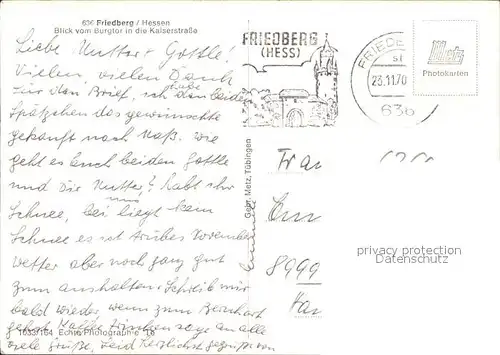 636 Friedberg / Hessen
Blick vom Burgtor in die Kaiserstraße
Liebe Mutter + Gottle!
Vielen, vielen Dank
für den Brief, ich habe den beiden
Spätzchen das gewünschte
gekauft nach Maß. Wie
geht es Euch beiden Gottle
und Die Mutter? habt ihr
Schnee, bei uns liegt kein
Schnee es ist trübes November
wetter aber noch ganz gut
zum aushalten. Schreib mir
bald wieder, wenn zum Bernhart
gehst
sage an alle
viele Grüße, seid herzlichst gegrüßt von
1033/164 Echte Photographie
FRIEDBERG
(HESS)
FRIEDB
23.11.70
636
Metz
Photokarten
Gebr. Metz, Tübingen
Frau
8999
privacy protection
Datenschutz